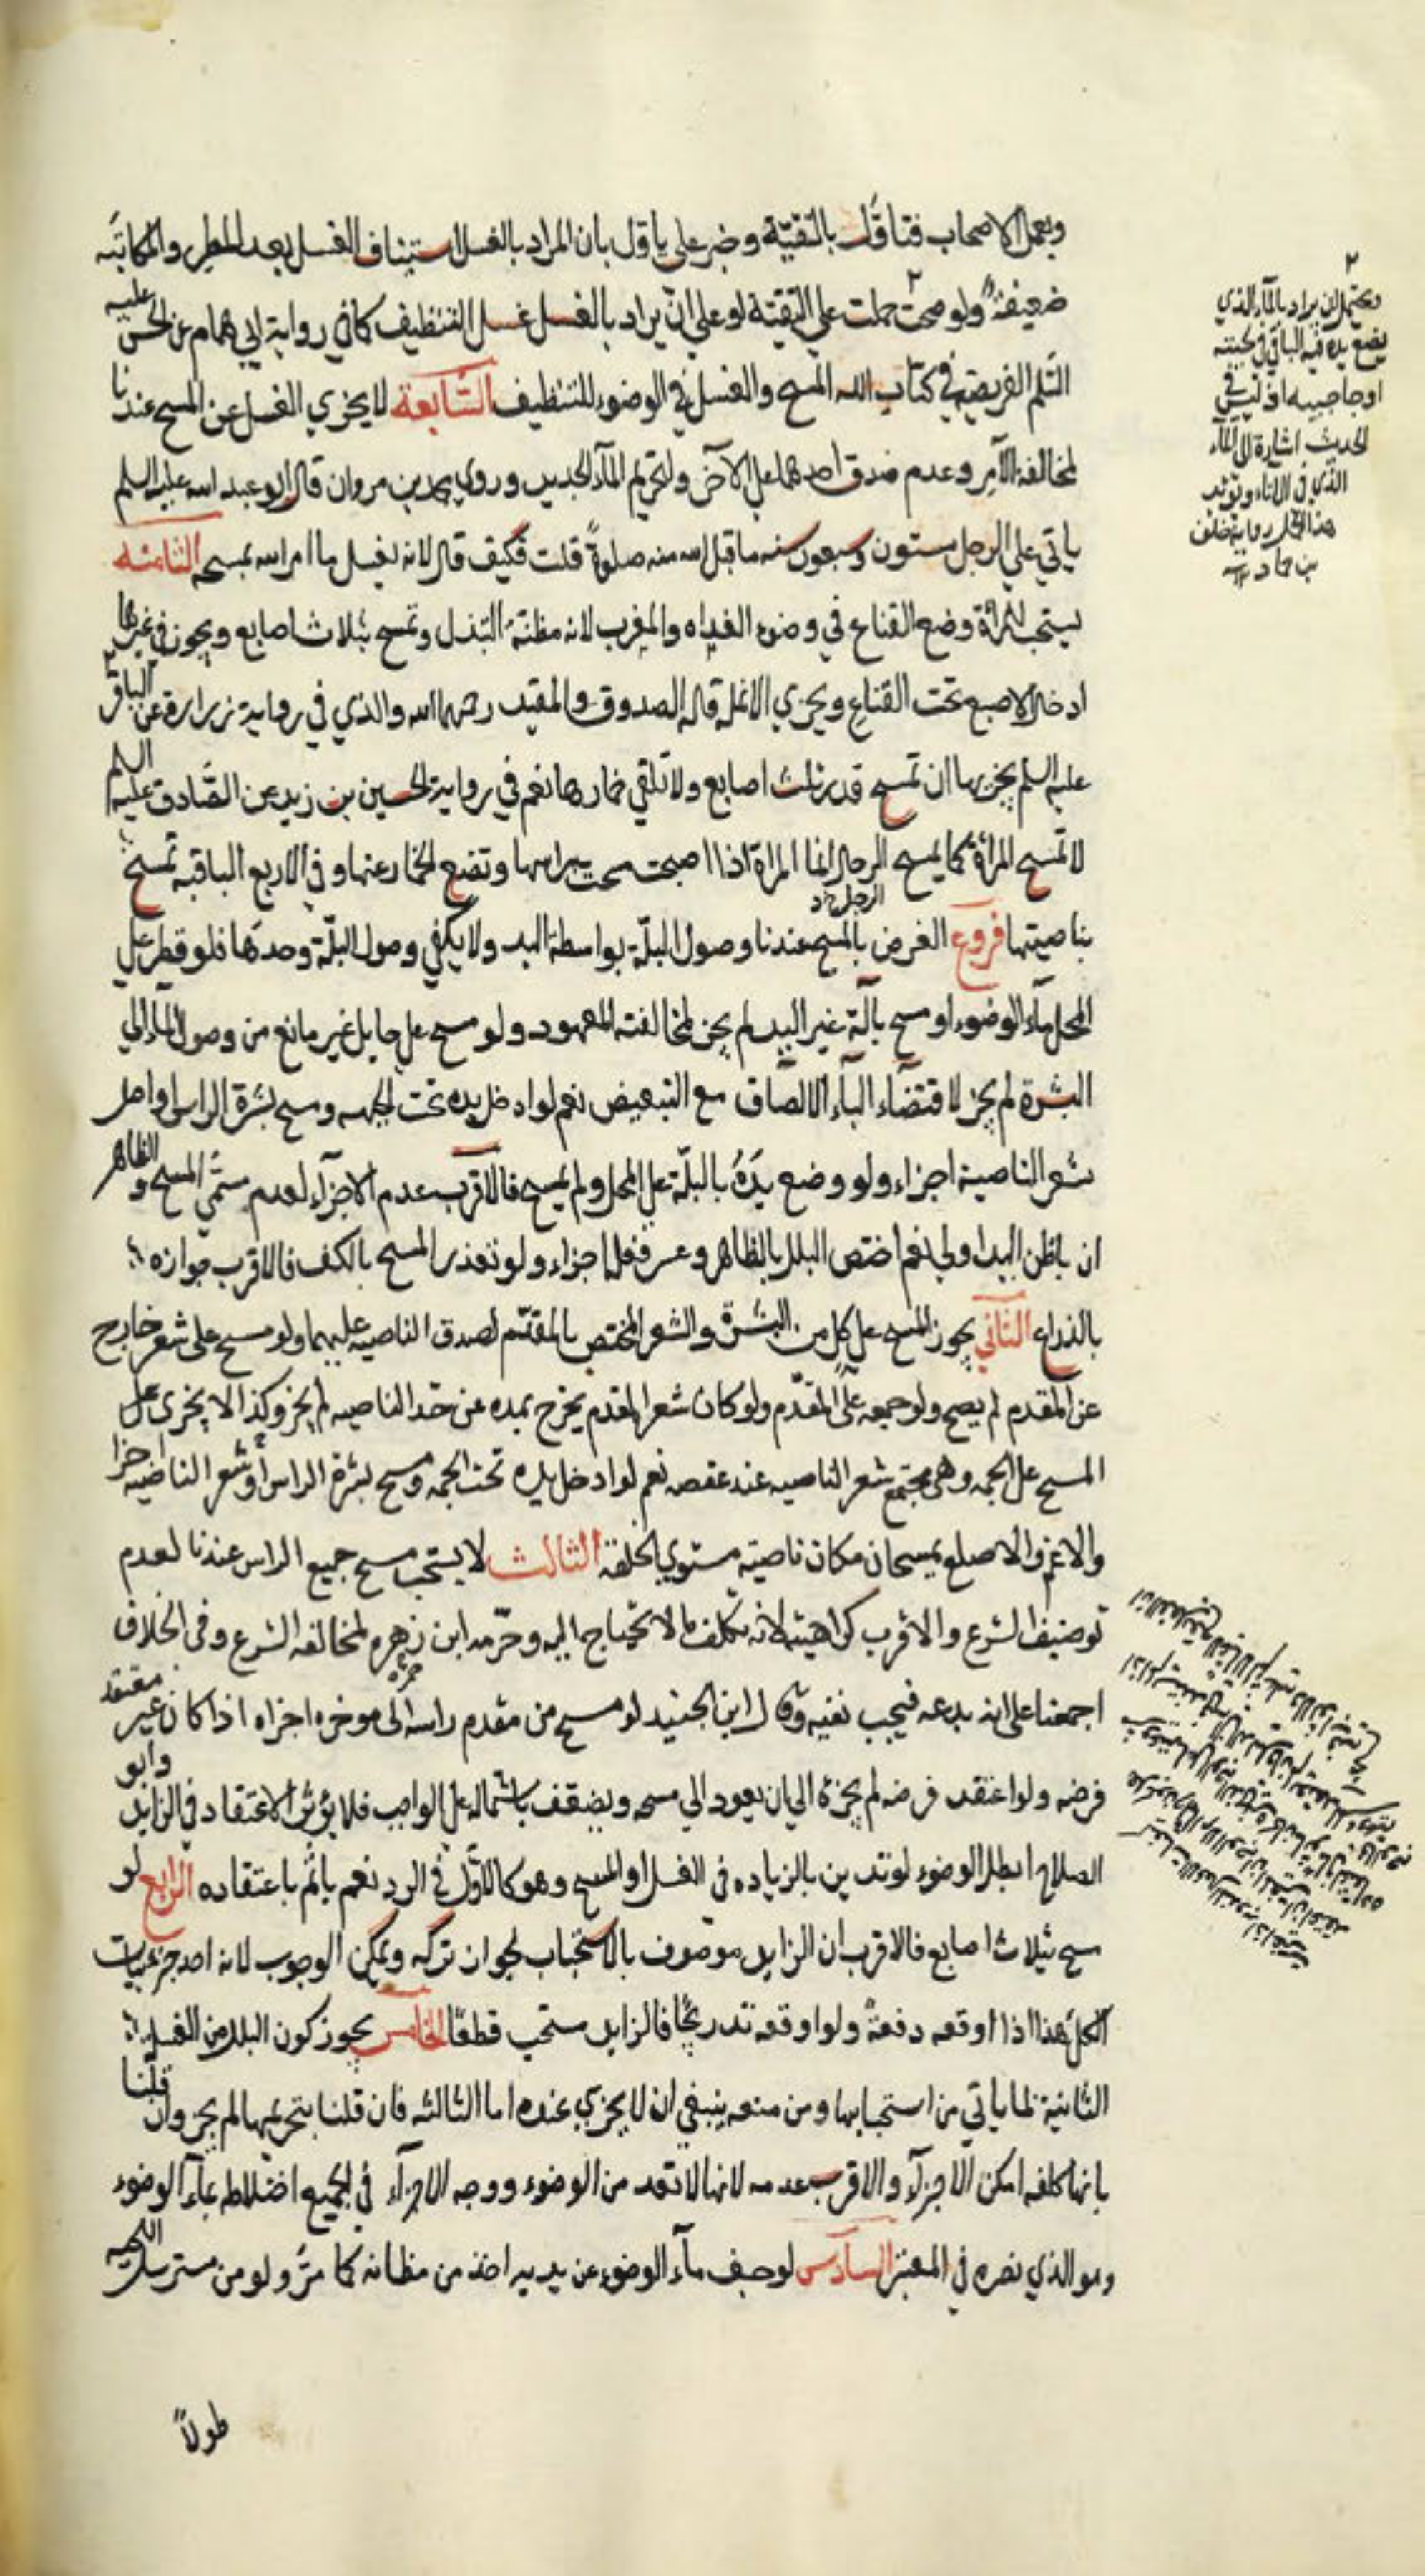 وبعمل الاصحاب فتاوّل بالتقيّة وخبر علي ياوّل بان المراد بالغسل استيناف الغسل بعد المطر والمكاتبة
ضعيفة ولو صحت حملت علي التقيّة او علي ان يراد بالغسل غسل التنظيف كما في رواية ابي همام عن ابي الحسن عليه
السّلم الفريضة في كتاب الله المسح والغسل في الوضوء للتنظيف السّابعة لا يجزي الغسل عن المسح عندنا
لمخالفة الامر وعدم صدق احدهما علي الاخر ولتحريم المآء الجديد وروي محمد بن مروان قال ابو عبد الله عليه السلم
ياتي علي الرجل ستون وسبعون سنه ما قبل الله منه صلوةً قلت فكيف قال لانه يغسل ما امر الله بمسحه الثامنه
يستحب للمرأة وضع القناع في وضوء الغداه والمغرب لانه مظنة التبذل وتمسح بثلاث اصابع ويجوز في غيرها
ادخال الاصبع تحت القناع ويجزي الانملة قاله الصدوق والمفيد رحمهما الله والذي في رواية زرارة عن الباقر
عليه السلم يجزيها ان تمسح قدر ثلث اصابع ولا تلقي خمارها نعم في رواية الحسين بن زيد عن الصّادق عليه السلم
لا تمسح المرأة كما يمسح الرجال انما المراة اذا اصبحت مسحت براسها وتضع الخمار عنها وفي الاربع الباقيه تمسح
بناصيتها فروع الغرض بالمسح عندنا وصول البلّة بواسطة اليد ولا يكفي وصول البلّة وحدها فلو قطر علي
المحل ماء الوضوء او مسح بآلة غير اليد لم يجز لمخالفته المعهود ولو مسح علي حايل غير مانع من وصول الماء الي
البشرة لم يجز لاقتضاء الباء الالصاق مع التبعيض نعم لو ادخل يده تحت الجمه ومسح بشرة الراس او اصل
شعر الناصية اجزاء ولو وضع يدَهُ بالبلّة علي المحل ولم يمسح فالاقرب عدم الاجزآء لعدم مسمّي المسح والظاهر
ان باطن اليد اولي نعم لو اختص البلل بالظاهر وعسر نقله اجزاء ولو تعذر المسح بالكف فالاقرب جوازه
بالذراع الثاني يجوز المسح علي كل من البشرة والشعر المختص بالمقدّم لصدق الناصيه عليهما ولو مسح على شعر خارج
عن المقدم لم يصح ولو جمعه على المقدّم ولو كان شعر المقدم يخرج بمده عن حد الناصيه لم يجز وكذا لا يجزى على
المسح على الجمه وهى مجتمع شعر الناصيه عند عقصه نعم لو ادخل يده تحت الجمه ومسح بشرة الراس أو شعر الناصيه اجزا
والاغم والاصلع يمسحان مكان ناصية مستوي الخلقه الثالث لا يستحب مسح جميع الراس عندنا لعدم
توضيف الشرع والاقرب كراهيته لانه تكلف ما لا تحتاج اليه وحرّمه ابن زهره لمخالفه الشرع وفى الخلاف
اجمعنا على انه بدعه فيجب نفيه وقال ابن الجنيد لو مسح من مقدم راسه الى موخره اجزاه اذا كان غير معتقد
فرضه ولو اعتقد فرضه لم يجزه الي ان يعود الي مسحه ويضعف باشتماله على الواجب فلا يؤثر الاعتقاد في الزايد وابو
الصلاح ابطل الوضوء لو تدين بالزياده فى الغسل او المسح وهو كالاوّل في الرد نعم ياثم باعتقاده الرابع لو
مسح بثلاث اصابع فالاقرب ان الزايد موصوف بالاستحباب لجواز تركه ويمكن الوجوب لانه احد جزئيات
الكلي هذا اذا اوقعه دفعةً ولو اوقعه تدريجًا فالزايد مستحب قطعًا الخامس يجوز كون البلل من الغسلة
الثانية لما ياتي من استحبابها ومن منعه ينبغي ان لا يجزي عنده اما الثالثه فان قلنا بتحريمها لم يجز وان قلنا
بانها كلفه امكن الاجزآء والاقرب عدمه لانها لا تعد من الوضوء ووجه الاجزآء في الجميع اختلاطه بمآء الوضوء
وهو الذي نصره في المعتبر السادس لو جف مآء الوضوء عن يديه اخذ من مظانه كما مرّ ولو من مسترسل اللحيه
طولاً
٢
ويحتمل ان يراد بالمآء الذي
يضع يده فيه الباقي في لحيته
او حاجبيه اذ ليس في
الحديث اشارة الى المآء
الذي في الاناء ويؤيد
هذا الحمل رواية خلف
بن حماد